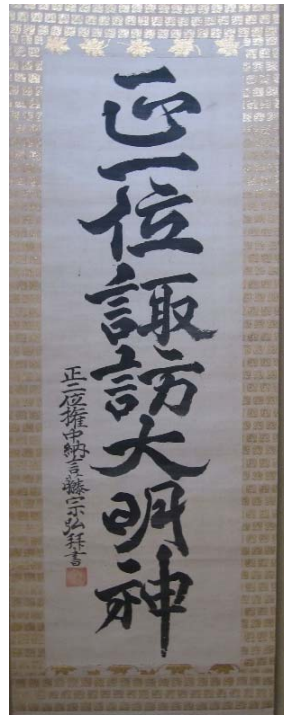 正一位諏訪大明神
正二位権中納言藤宗弘拝書